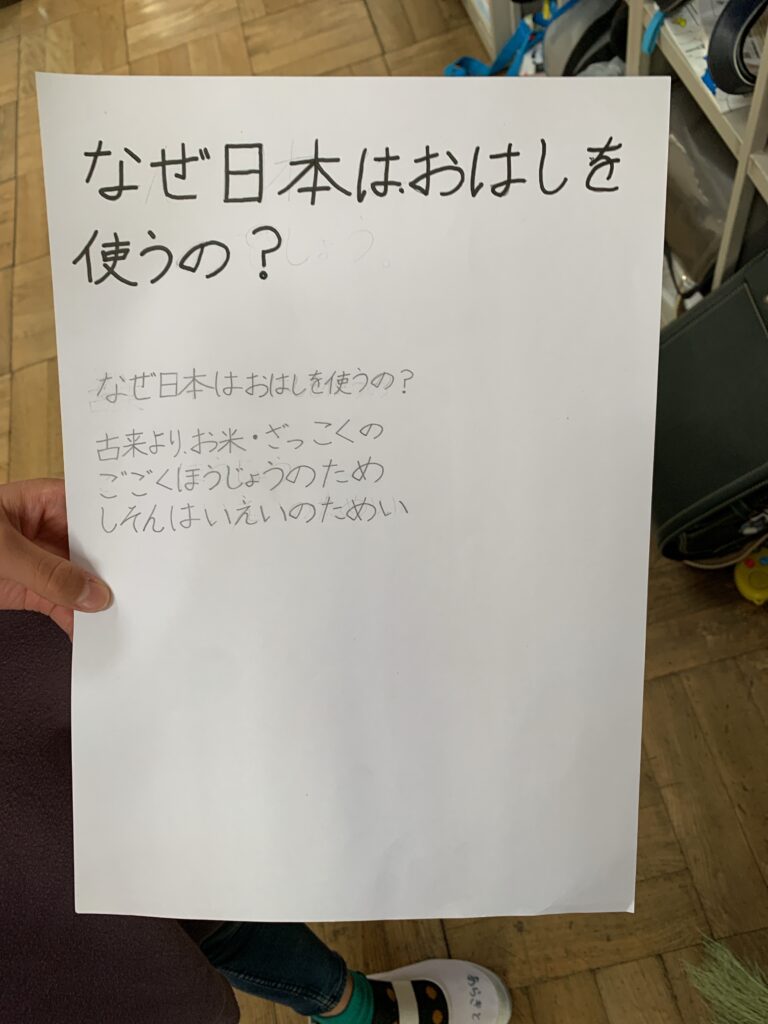 なぜ日本は、おはしを
使うの?
なぜ日本はおはしを使うの?
古来より、お米・ざっこくの
ごごくほうじょうのため
しそんはいえいのためい